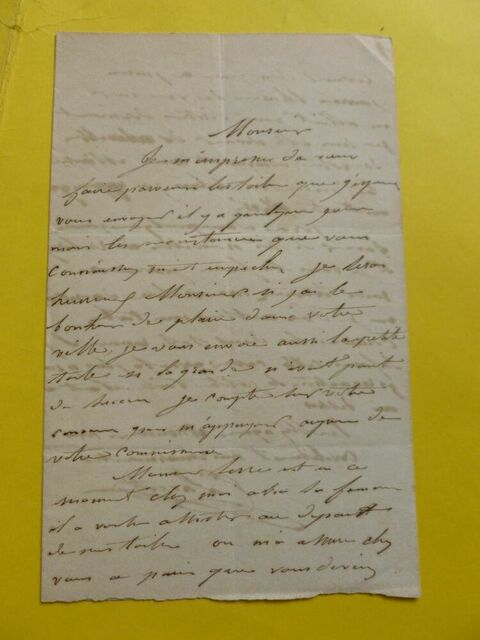 Monsieur
Je m'empresse de vous
faire parvenir les toiles que j'espérais
vous envoyer il y a quelques jours
mais les circonstances que vous
connaissez m'ont empêché je serai
heureux Monsieur si j'ai le
bonheur de plaire dans votre
ville, je vous envoie aussi la petite
toile si la grande n'avait point
de succès je compte sur votre
pour m'appuyer auprès de
votre commission
Monsieur est en ce
moment chez moi avec sa femme
il a voulu assister au départ
de mes toiles on m'a assuré chez
vous a que vous deviez